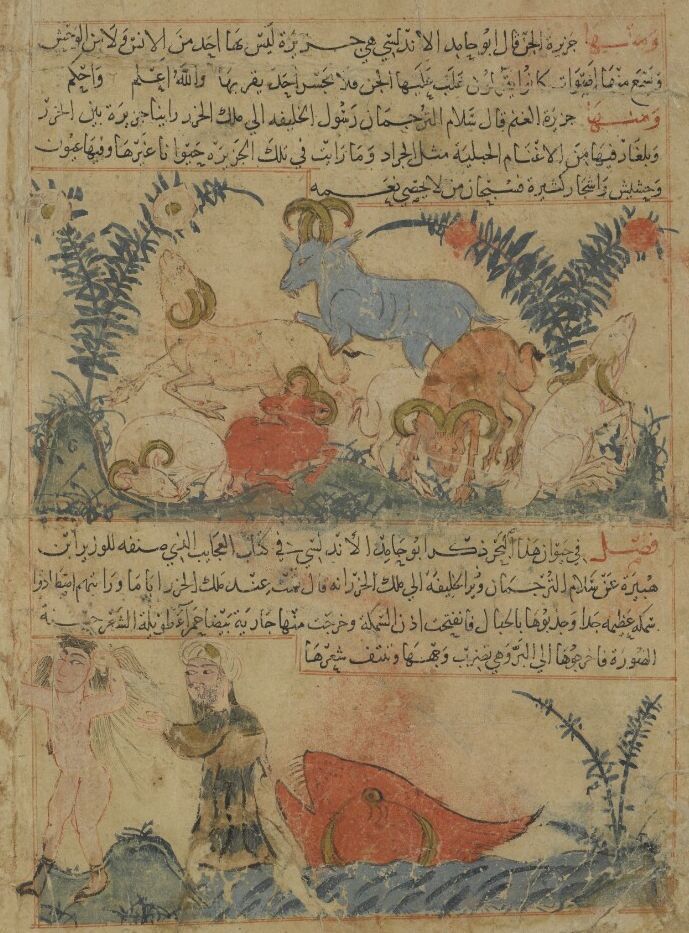 ومنها جزيرة الجن قال ابو حامد الاندلسي هي جزيرة ليس بها احد من الانس ولا من الوحش
وتسمع منها اصوات كانوا يقولون غلب عليها الجن فلا يجسر احد يقربها والله اعلم واحكم
ومنها جزيرة الغنم قال سلام الترجمان رسول الخليفه الى ملك الخزر راينا جزيرة بين الخزر
وبلغار فيها من الاغنام الجبلية مثل الجراد وما رايت في تلك الجزيرة حيوانا غيرها وفيها عيون
وحشيش واشجار كثيرة فسبحان من لا تحصى نعمه
فصل في حيوان هذا البحر ذكر ابو حامد الاندلسي في كتاب العجايب الذي صنفه للوزير ابن
هبيرة عن سلام الترجمان الخليفة الى ملك الخزر انه قال عند ملك الخزر اياما ورايتهم اصطادوا
سمكه عظيمه جدا وجذبوها بالحبال فانفتحت اذن السمكة وخرجت منها جارية بيضا حمرا طويلة الشعر حسنة
الصورة فاخرجوها الى البر وهي تضرب وجهها وتنتف شعرها